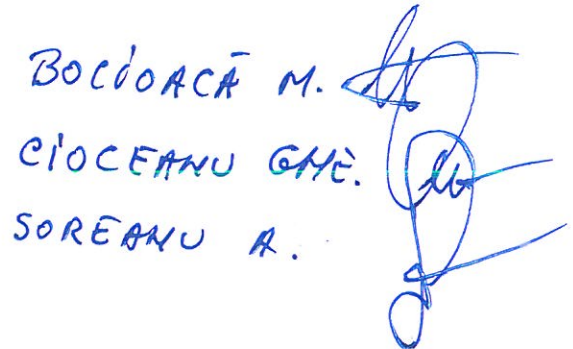 BOCIOACĂ M.
CIOCEANU GHE.
SOREANU A.